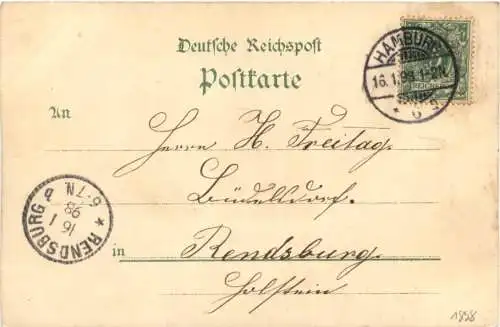 Deutsche Reichspost
Postkarte
HAMBURG
16.1.98.1-2N.
* 6 a
An
Herrn H. Freitag.
Büdelsdorf.
in Rendsburg.
Holstein
RENDSBURG *
16 1
98
6-7N.
1898